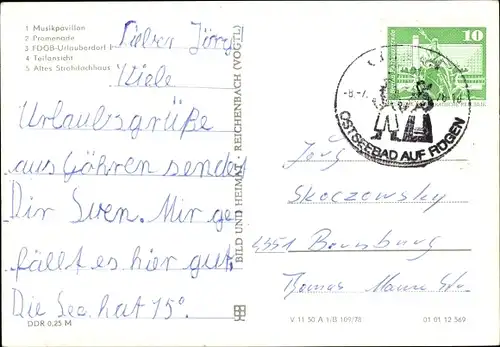 1 Musikpavillon
2 Promenade
3 FDGB-Urlauberdorf
4 Teilansicht
5 Altes Strohdachhaus
Lieber Jörg
Viele
Urlaubsgrüße
aus Göhren sendet
Dir Sven. Mir ge
fällt es hier gut.
Die See hat 15°.
DDR 0,25 M
BILD UND HEIMAT REICHENBACH (VOGTL)
10
OSTSEEBAD AUF RÜGEN
Jörg
Skoczewsky
4351 Bernburg
Thomas Mann Str.
V 11 50 A 1/B 109/78
01 01 12 569